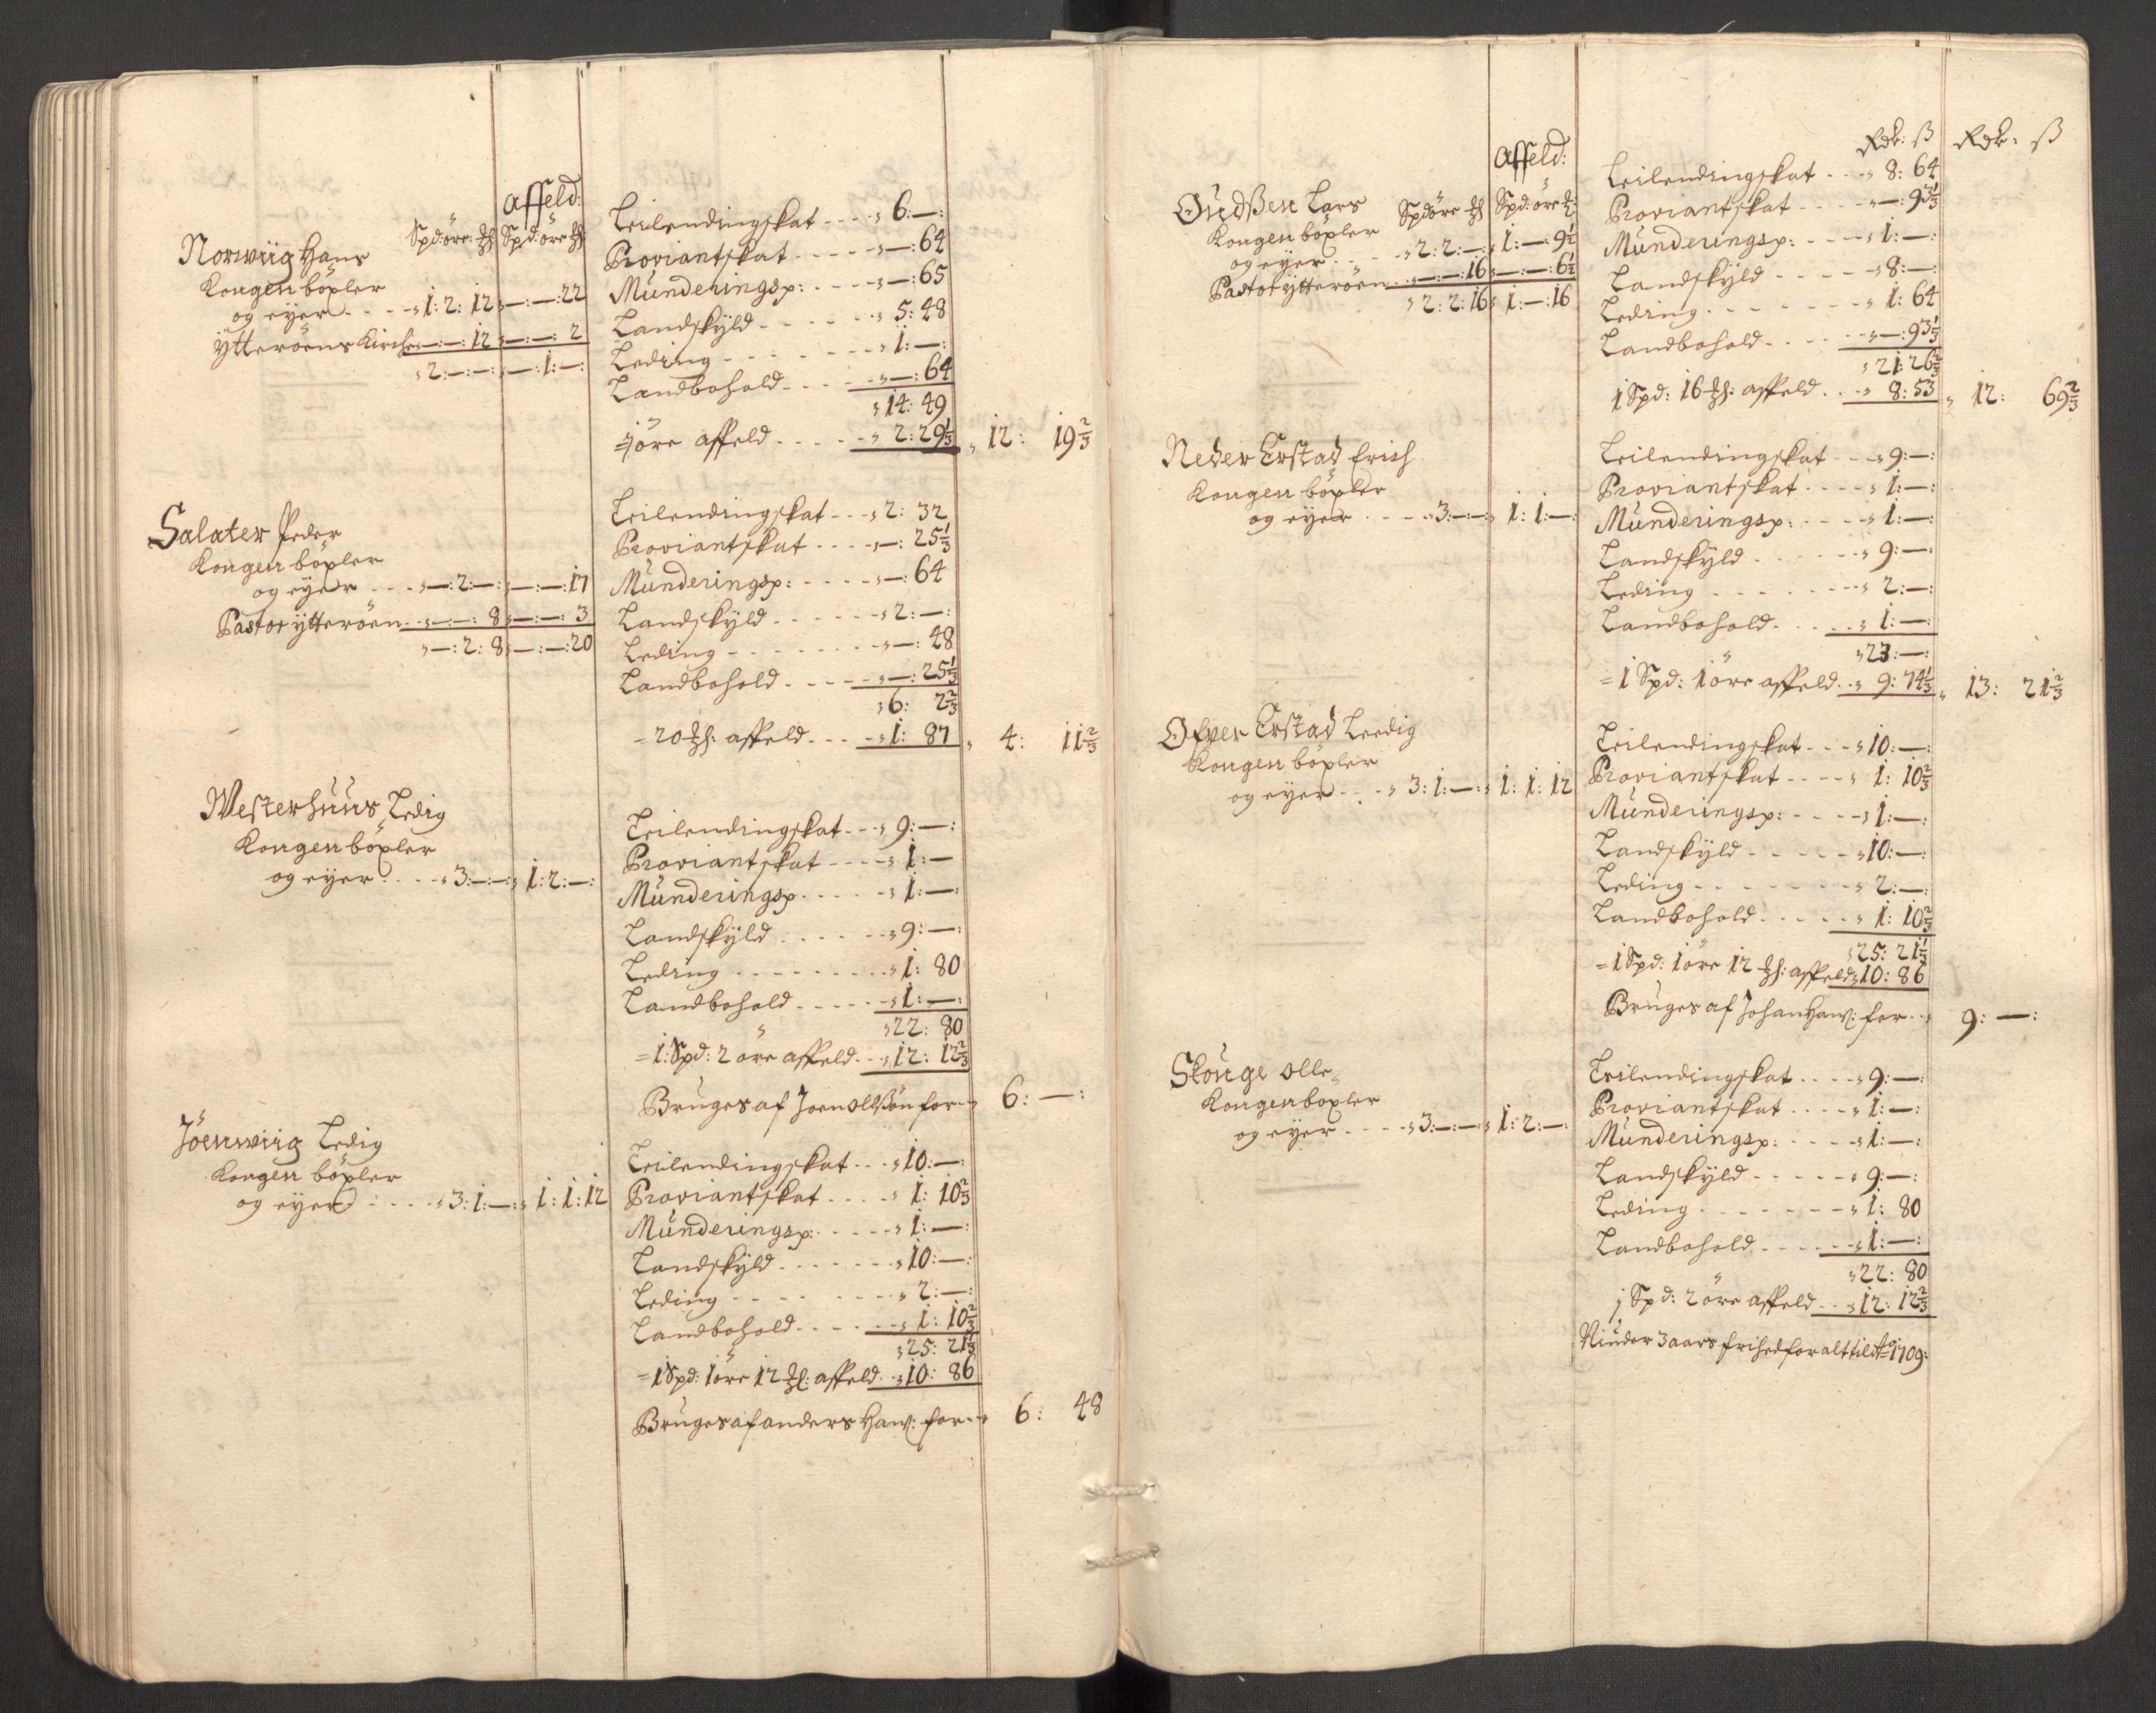 Affeld:
Spd: öre: ⅌ Spd: öre ⅌
Norwiig Hans
Kongen böxler
og eyer - - - - 1: 2: 12 —: —: 22
Ytterøens Kirche —: —: 12 —: —: 2
2: —: —: —: 1: —:
Leilendingskat - - - - 6: —:
Proviantskat - - - - —: 64
Munderingsp: - - - - —: 65
Landskyld - - - - 5: 48
Leding - - - - 1: —:
Landbohold - - - - —: 64
14: 49
= 1 öre affeld - - - - 2: 29⅓ 12: 19⅔
Salater Peder
Kongen böxler
og eyer - - - —: 2: —: —: —: 17
Pastor ytterøen —: —: 8 —: —: 3
—: 2: 8 —: —: 20
Leilendingskat - - - 2: 32
Proviantskat - - - - —: 25⅓
Munderingsp: - - - - —: 64
Landskyld - - - - 2: —:
Leding - - - - —: 48
Landbohold - - - - —: 25⅓
6: 2⅔
= 20 affeld - - - 1: 87 4: 11⅔
Westerhuus Ledig
Kongen böxler
og eyer - - - 3: —: —: 1: 2: —:
Leilendingskat - - - 9: —:
Proviantskat - - - - 1: —
Munderingsp - - - - 1: —:
Landskyld - - - - 9: —:
Leding - - - - 1: 80
Landbohold - - - - 1: —:
22: 80
= 1: Spd: 2 öre affeld - - 12: 12⅔
Bruges af Joen Ollßön for - - 6: —:
Jöenwiig Ledig
Kongen böxler
og eyer - - - - 3: 1: —: 1: 1: 12
Leilendingskat - - - 10: —:
Proviantskat - - - - 1: 10⅔
Munderingsp: - - - - 1: —:
Landskyld - - - - 10: —:
Leding - - - - 2: —:
Landbohold - - - - 1: 10⅔
25: 21⅓
= 1 Spd: 1 öre 12 affeld - - 10: 86
Bruges af anders Haw: for - - 6: 48
Rdr: ß Rdr: ß
Affeld:
Spd öre Spd: öre
Oudßen Lars
Kongen böxler
og eyer - - - - 2: 2: —: 1: —: 9½
Pastor ytterøen - - —: —: 16 —: —: 6½
2: 2: 16 1: —: 16
Leilendingskat - - - 8: 64
Proviantskat - - - - —: 93⅓
Munderingsp: - - - - 1: —:
Landskyld - - - - 8: —:
Leding - - - - 1: 64
Landbohold - - - - —: 93⅓
21: 26⅔
1 Spd: 16 affeld - - - 8: 53 12: 69⅔
Neder Erstad Erich
Kongen böxler
og eyer - - - - 3: —: —: 1: 1: —:
Leilendingskat - - - 9: —:
Proviantskat - - - - 1: —:
Munderingsp: - - - - 1: —:
Landskyld - - - - 9: —:
Leding - - - - 2: —:
Landbohold - - - - 1: —:
23: —:
= 1 Spd: 1 öre affeld - - 9: 74⅓ 13: 21⅔
Ofver Erstad Leedig
Kongen böxler
og eyer - - - 3: 1: —: 1: 1: 12
Leilendingskat - - - 10: —:
Proviantskat - - - - 1: 10⅔
Munderingsp: - - - - 1: —:
Landskyld - - - - 10: —:
Leding - - - - 2: —:
Landbohold - - - - 1: 10⅔
25: 21⅓
= 1 Spd: 1 öre 12 affeld 10: 86
Bruges af Johan Haw: for - - 9: —:
Skouge Olle
Kongen boxler
og eyer - - - - 3: —: —: 1: 2: —:
Leilendingskat - - - - 9: —:
Proviantskat - - - - 1: —:
Munderingsp: - - - - 1: —:
Landskyld - - - - 9: —:
Leding - - - - 1: 80
Landbohold - - - - 1: —:
22: 80
1 Spd: 2 öre affeld - - 12: 12⅔
Niuder 3 aars frihed for alt til Ao 1709: